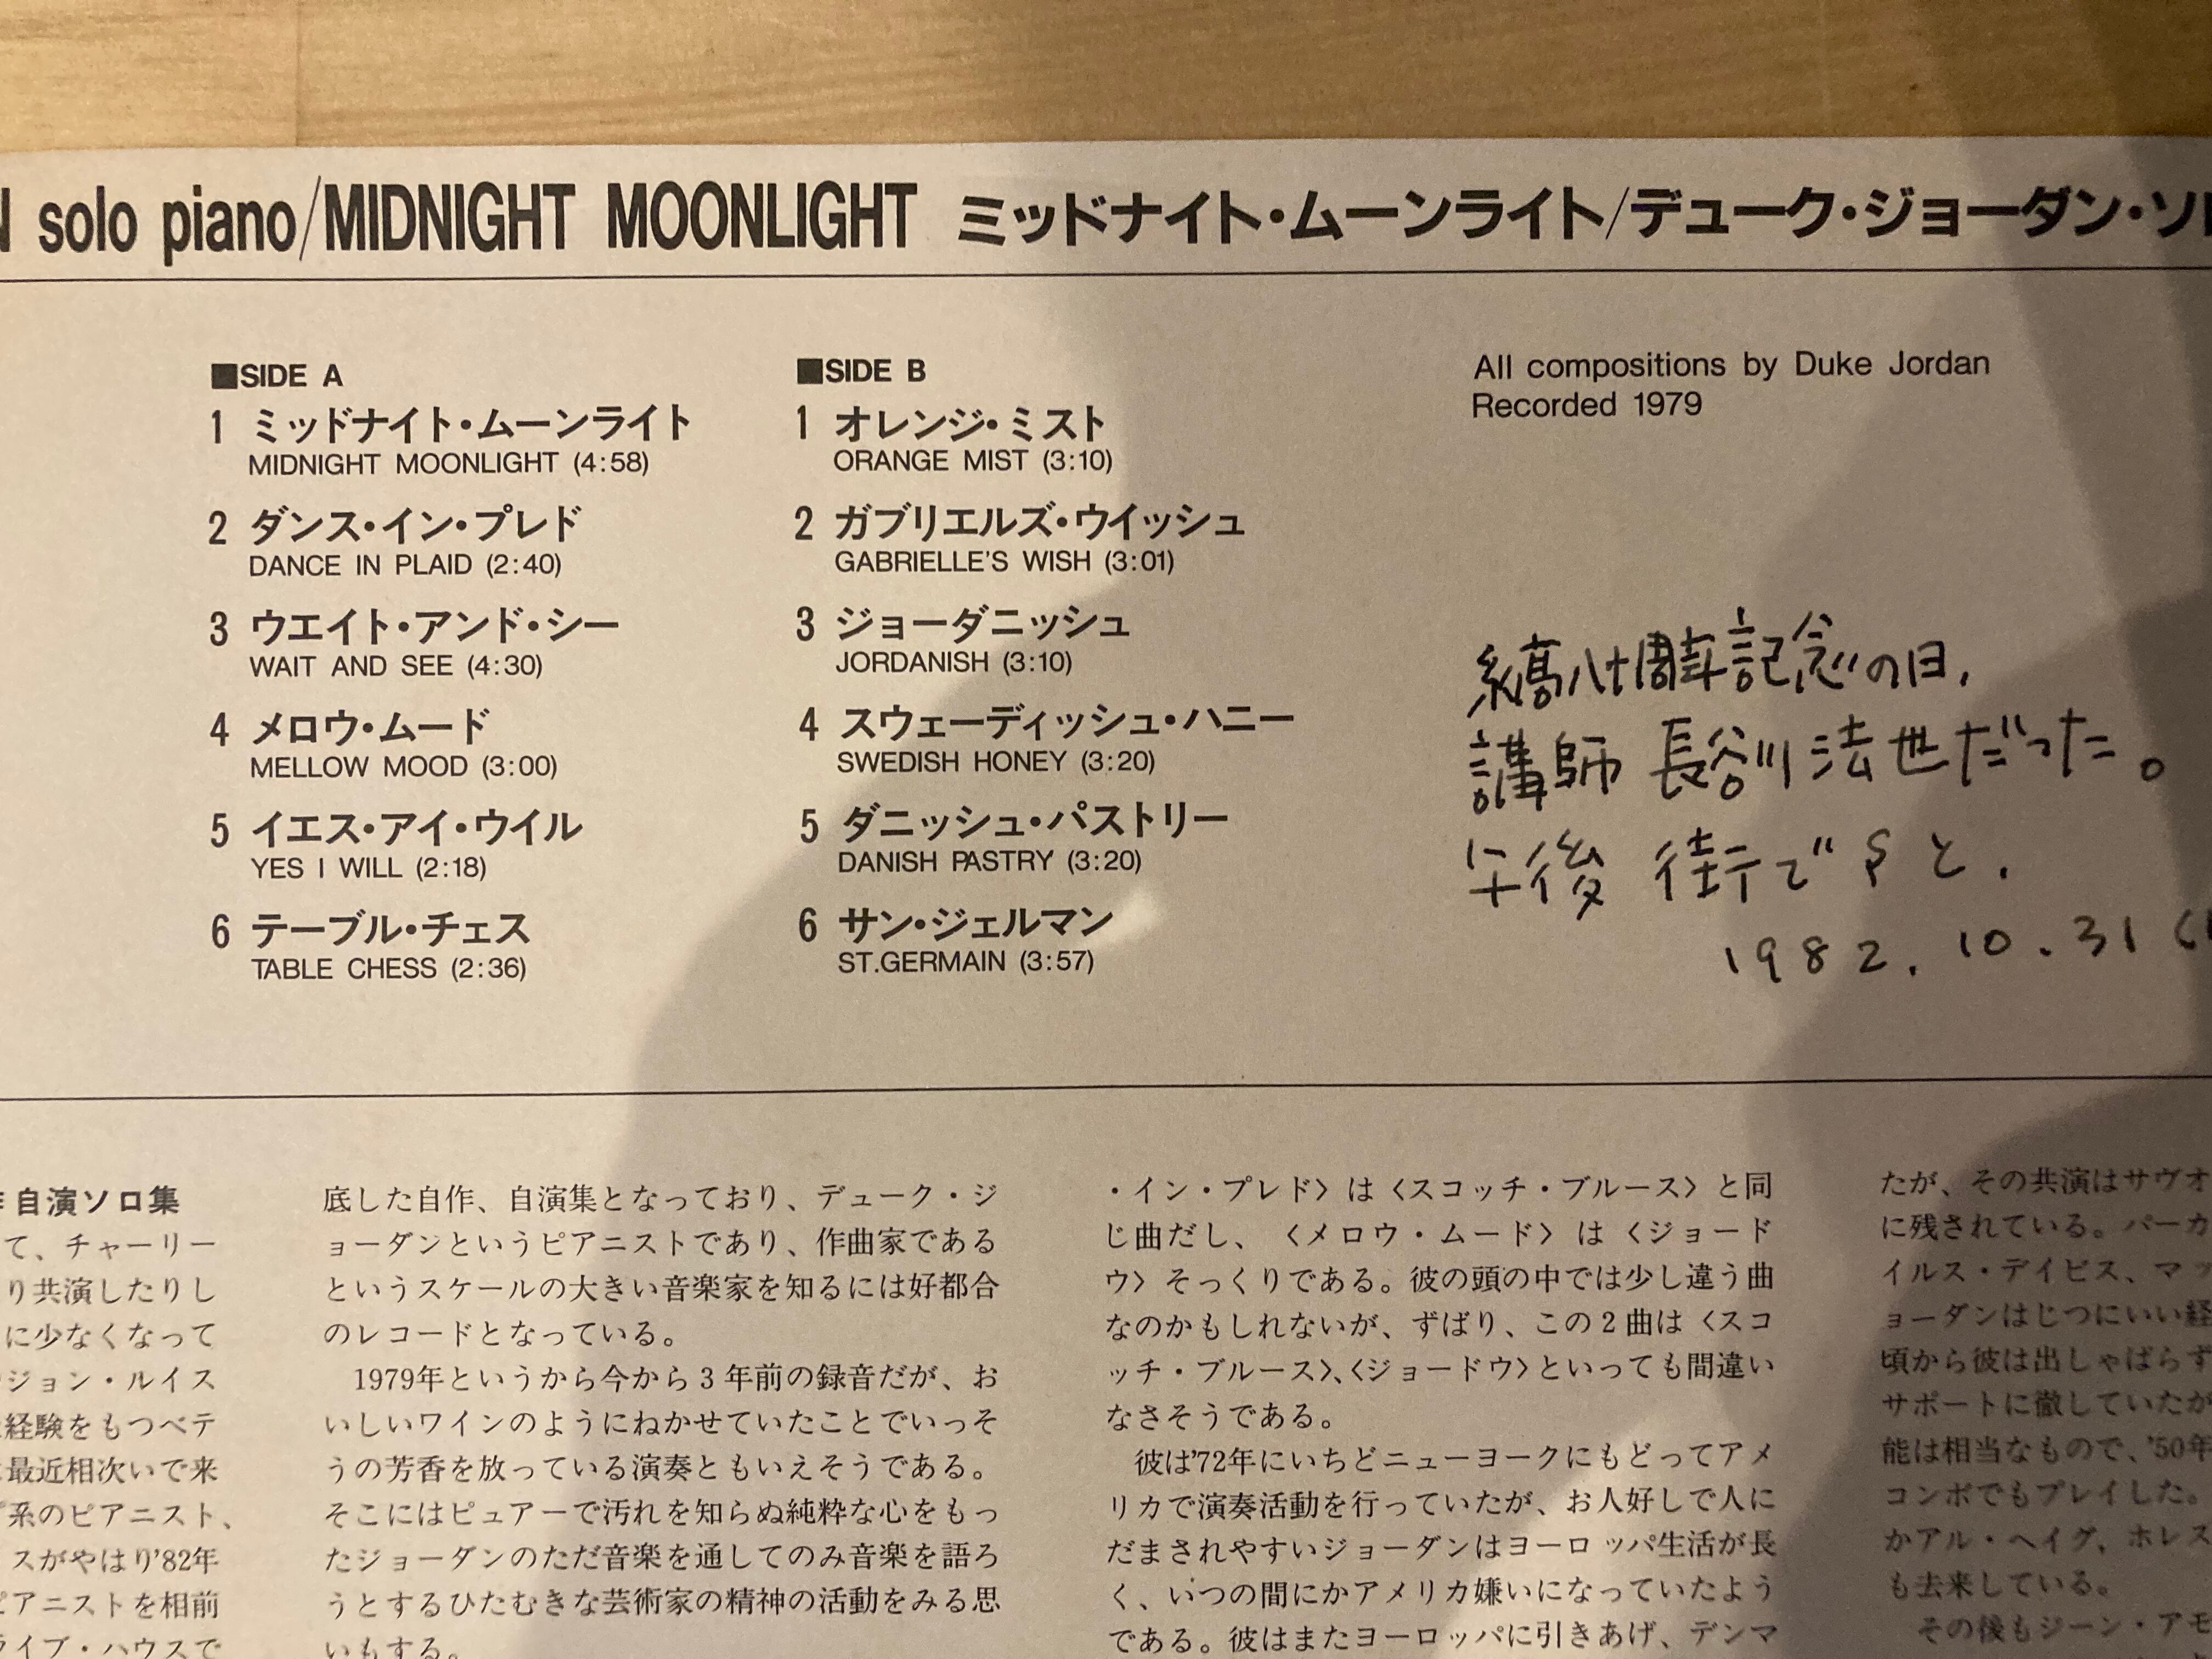 solo piano/MIDNIGHT MOONLIGHT ミッドナイト・ムーンライト/デューク・ジョーダン・ソ
■SIDE A
1 ミッドナイト・ムーンライト
MIDNIGHT MOONLIGHT (4:58)
2 ダンス・イン・プレド
DANCE IN PLAID (2:40)
3 ウエイト・アンド・シー
WAIT AND SEE (4:30)
4 メロウ・ムード
MELLOW MOOD (3:00)
5 イエス・アイ・ウイル
YES I WILL (2:18)
6 テーブル・チェス
TABLE CHESS (2:36)
■SIDE B
1 オレンジ・ミスト
ORANGE MIST (3:10)
2 ガブリエルズ・ウイッシュ
GABRIELLE'S WISH (3:01)
3 ジョーダニッシュ
JORDANISH (3:10)
4 スウェーディッシュ・ハニー
SWEDISH HONEY (3:20)
5 ダニッシュ・パストリー
DANISH PASTRY (3:20)
6 サン・ジェルマン
ST.GERMAIN (3:57)
All compositions by Duke Jordan
Recorded 1979
縞八十周年記念の日,
講師 長谷川法世だった。
午後 街で と.
1982.10.31
自演ソロ集
て、チャーリー
り共演したりし
に少なくなって
ジョン・ルイス
経験をもつベテ
最近相次いで来
系のピアニスト、
スがやはり'82年
ピアニストを相前
ライブ・ハウスで
底した自作、自演集となっており、デューク・ジ
ョーダンというピアニストであり、作曲家である
というスケールの大きい音楽家を知るには好都合
のレコードとなっている。
1979年というから今から3年前の録音だが、お
いしいワインのようにねかせていたことでいっそ
うの芳香を放っている演奏ともいえそうである。
そこにはピュアーで汚れを知らぬ純粋な心をもっ
たジョーダンのただ音楽を通してのみ音楽を語ろ
うとするひたむきな芸術家の精神の活動をみる思
いもする。
・イン・プレド〉は〈スコッチ・ブルース〉と同
じ曲だし、〈メロウ・ムード〉は〈ジョード
ウ〉そっくりである。彼の頭の中では少し違う曲
なのかもしれないが、ずばり、この2曲は〈スコ
ッチ・ブルース〉、〈ジョードウ〉といっても間違い
なさそうである。
彼は'72年にいちどニューヨークにもどってアメ
リカで演奏活動を行っていたが、お人好しで人に
だまされやすいジョーダンはヨーロッパ生活が長
く、いつの間にかアメリカ嫌いになっていたよう
である。彼はまたヨーロッパに引きあげ、デンマ
たが、その共演はサヴオ
に残されている。パーカ
イルス・デイビス、マッ
ョーダンはじつにいい経
頃から彼は出しゃばらず
サポートに徹していたが
能は相当なもので、'50年
コンボでもプレイした。
かアル・ヘイグ、ホレス
も去来している。
その後もジーン・アモ